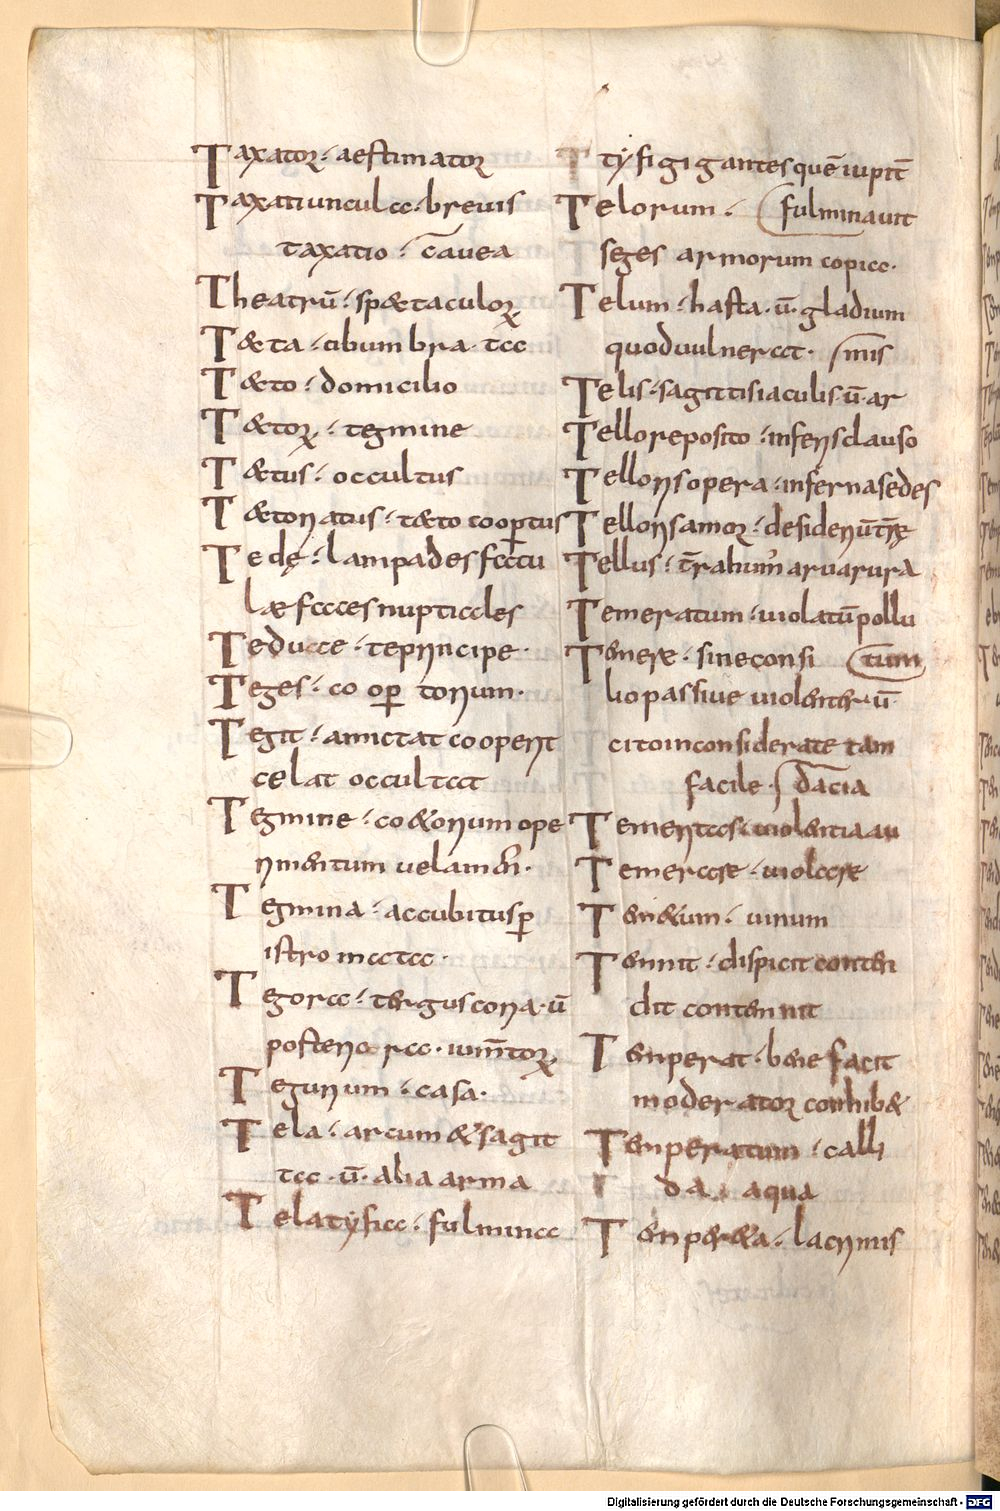 Taxator · aestimator
Taxatiuncula · brevis
taxatio · cavea
Theatrū · spectaculoꝝ
Tecta · cibum bra ta
Tecto · domicilio
Tectoꝝ · tegmine
Tectus · occultus
Tectoriatus · tecto coopertus
Tedę · lampades faccu
læ faces nuptiales
Teduce · teprincipe ·
Teges · co op̄ torium ·
Tegit · amictat cooperit
celat occultat
Tegmine · coctorium ope
rimentum velam̄
Tegmina · accubitus p̄
istromata ·
Tegora · tergus coria · ū
posteriora · iumtoꝝ
Tegurium · casa ·
Tela · arcum & sagit
ta · ū · alia arma
Telatyfica · fulmina
tyfi gigantes quē iupit̄
Telorum · fulminavit
seges armorum copia ·
Telum · hasta · ū · gladium
quod vulnerat · mis
Telis · sagittis iaculis · ū · ar
Tello reposito · inferis clauso
Telloris opera · inferna sedes
Telloris amor · desideriū t̄rę
Tellus · t̄ra humꝰ arva rura
Temeratum · violatū pollu
Temere · sine consi tum
lio passive violenter · ū ·
cito inconsiderate tam
facile · dacia
Temeritas · violentia au
Temerare · violare
Temetum · vinum
Temnit · dispicit conten
dit contemnit
Temperat · bene facit
moderator conhibet
Temperatum · calli
da aqua
Tempetea · lacrimis
Digitalisierung gefördert durch die Deutsche Forschungsgemeinschaft - DFG